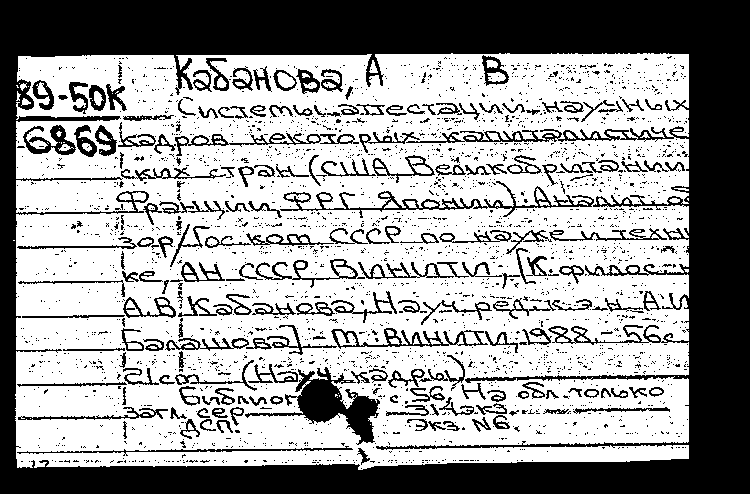 Кабанова, А В
89-50К
6869
Системы аттестации научных
кадров некоторых капиталистиче
ских стран (США, Великобритании
Франции, ФРГ, Японии): Аналит. об
зор/Гос. ком. СССР по науке и техни
ке, АН СССР, ВИНИТИ; [К. филос. н
А.В. Кабанова; Науч. ред. к.э.н. А.И
Балашова] - М.: ВИНИТИ, 1988. - 56с
21см - (Науч. кадры)
с. 56, На обл. только
загл. сер. 314 экз.
ДСП. Экз. №6.